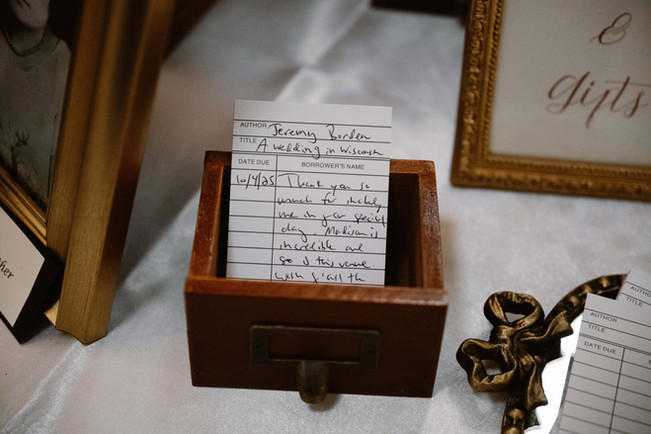 &
Gifts
AUTHOR Jeremy Borden
TITLE A wedding in Wisconsin
DATE DUE BORROWER'S NAME
10/4/25 Thank you so
much for including
me in your special
day. Madison is
incredible and
so is this venue.
wish y'all the
her
AUTHOR
AUTHOR
TITLE
DATE DUE